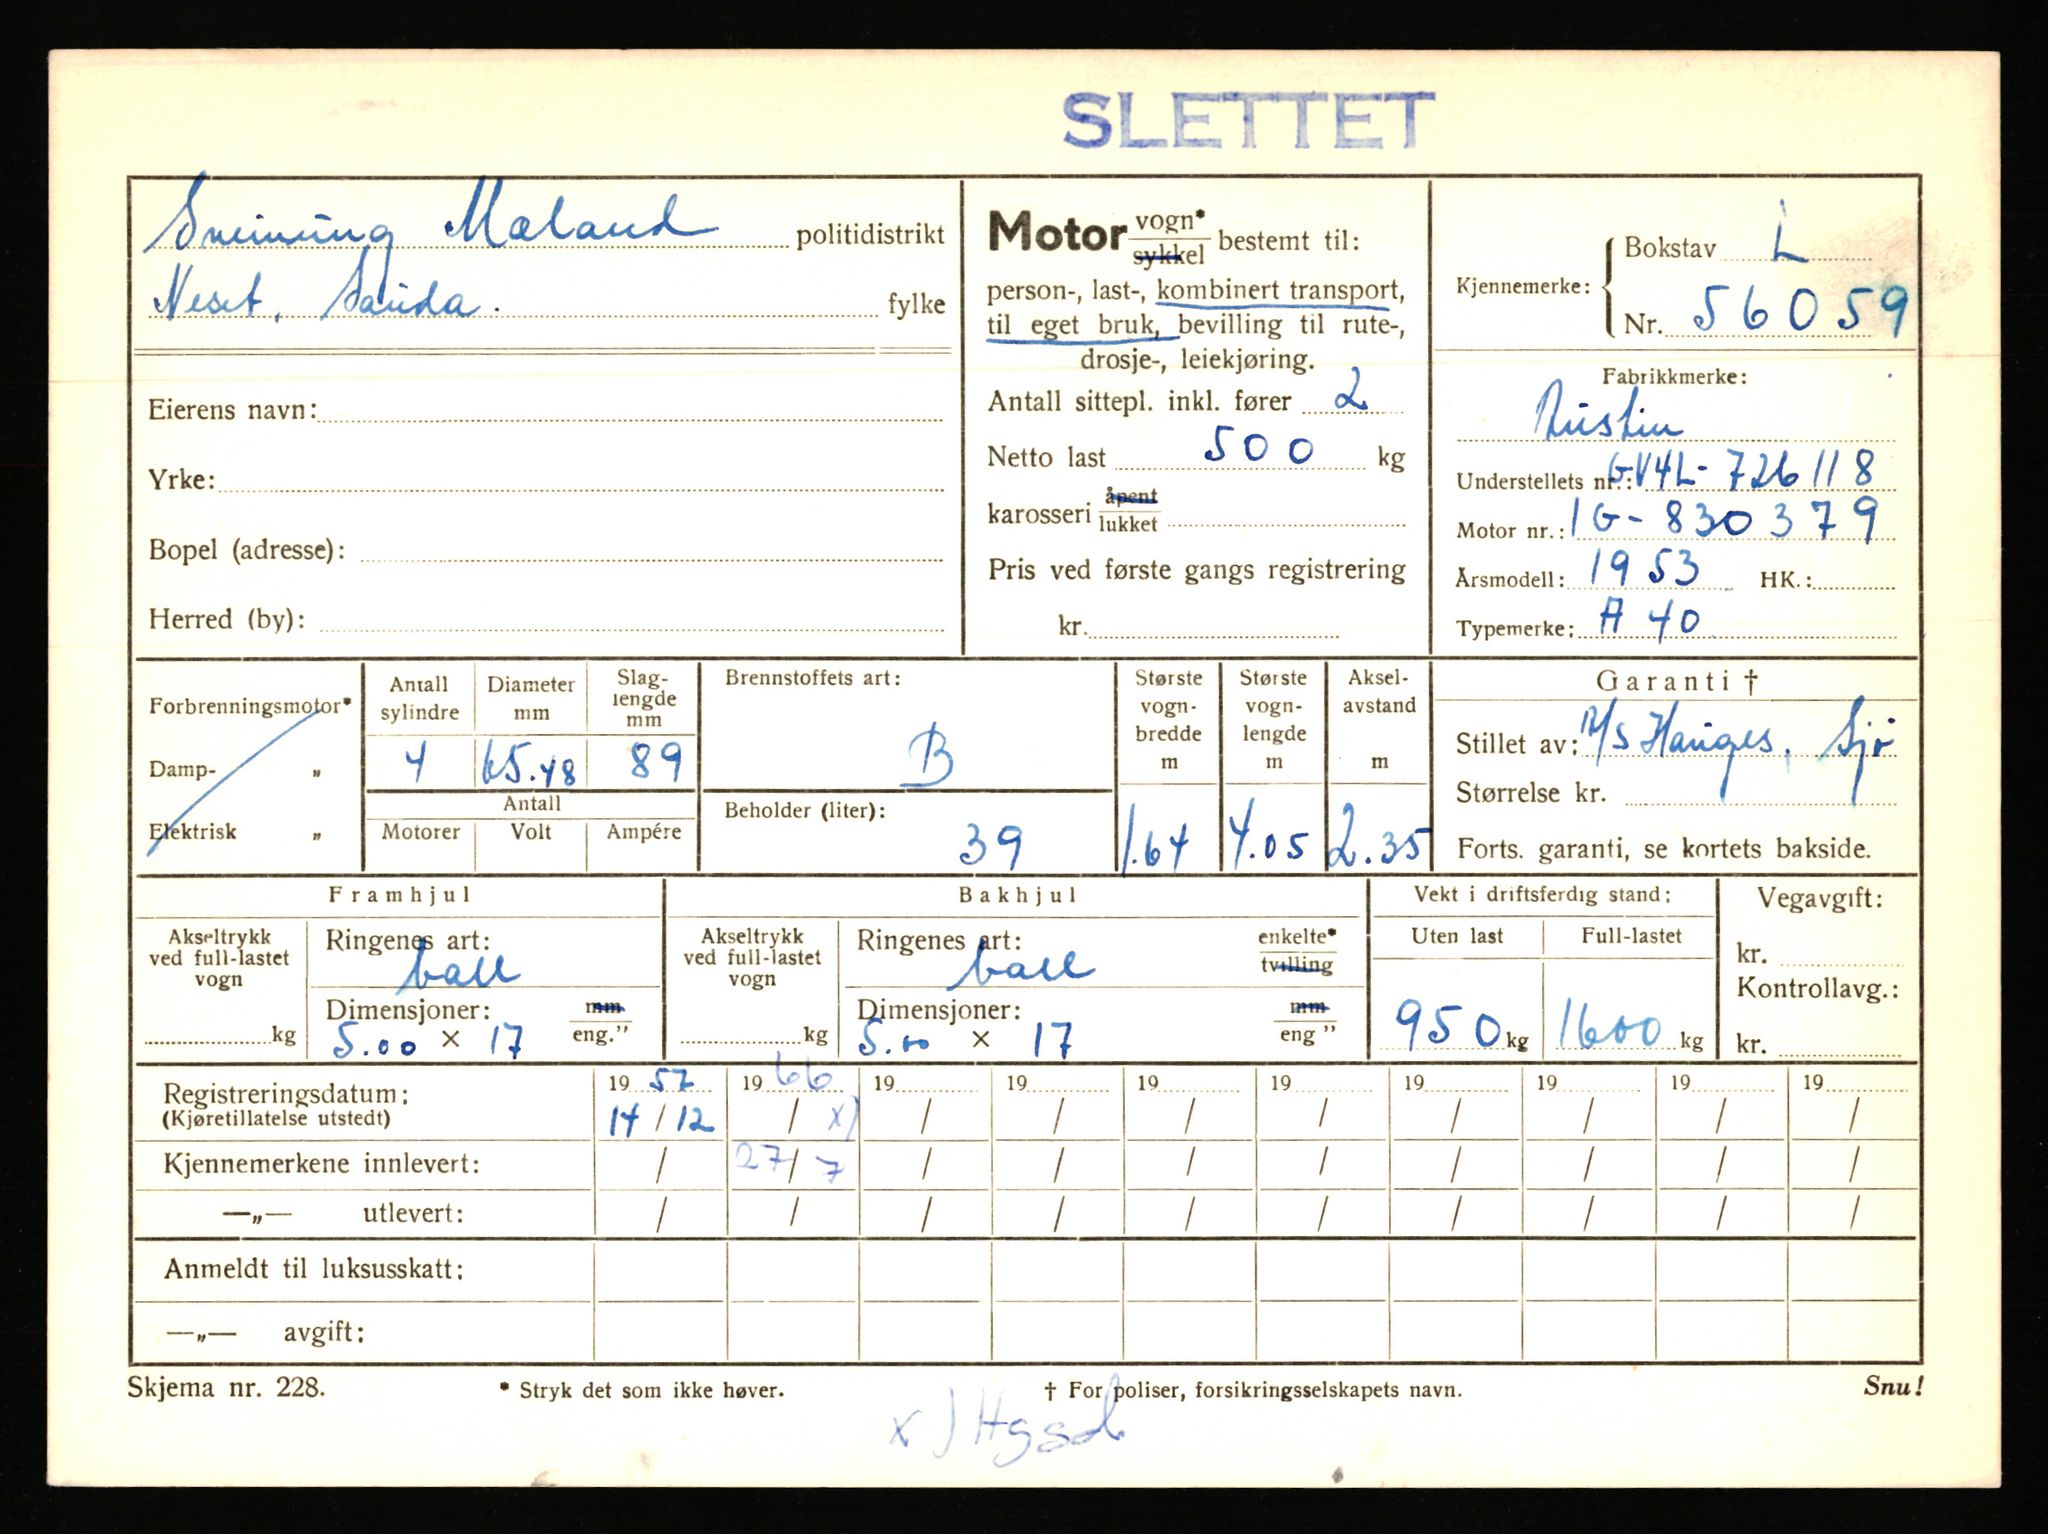 SLETTET
Sveinung Mæland politidistrikt
Neset, Sauda. fylke
Eierens navn:
Yrke:
Bopel (adresse):
Herred (by):
Motor vogn* / sykkel bestemt til:
person-, last-, kombinert transport,
til eget bruk, bevilling til rute-,
drosje-, leiekjøring.
Antall sittepl. inkl. fører 2
Netto last 500 kg
karosseri åpent / lukket
Pris ved første gangs registrering
kr.
Kjennemerke: Bokstav L
Nr. 56059
Fabrikkmerke:
Austin
Understellets nr.: GV4L-726118
Motor nr.: 1G-830379
Årsmodell: 1953 HK.:
Typemerke: A 40
Forbrenningsmotor*
Damp- „
Elektrisk „
Antall sylindre Diameter mm Slaglengde mm
4 65.48 89
Antall
Motorer Volt Ampére
Brennstoffets art:
B
Beholder (liter):
39
Største vogn-bredde m
1.64
Største vogn-lengde m
4.05
Aksel-avstand m
2.35
Garanti †
Stillet av: A/S Hauges, Sjø
Størrelse kr.
Forts. garanti, se kortets bakside.
Framhjul
Akseltrykk ved full-lastet vogn
kg
Ringenes art:
ball
Dimensjoner: mm / eng.”
5.00 × 17
Bakhjul
Akseltrykk ved full-lastet vogn
kg
Ringenes art: enkelte* / tvilling
ball
Dimensjoner: mm / eng”
5.00 × 17
Vekt i driftsferdig stand:
Uten last Full-lastet
950 kg 1600 kg
Vegavgift:
kr.
Kontrollavg.:
kr.
Registreringsdatum: 19 57 19 66 19 19 19 19 19 19 19 19
(Kjøretillatelse utstedt) 14 / 12 / x) / / / / / / / /
Kjennemerkene innlevert: / 27/7 / / / / / / / /
—„— utlevert: / / / / / / / / / /
Anmeldt til luksusskatt:
—„— avgift:
Skjema nr. 228. * Stryk det som ikke høver. † For poliser, forsikringsselskapets navn. Snu!
x) Hgsd